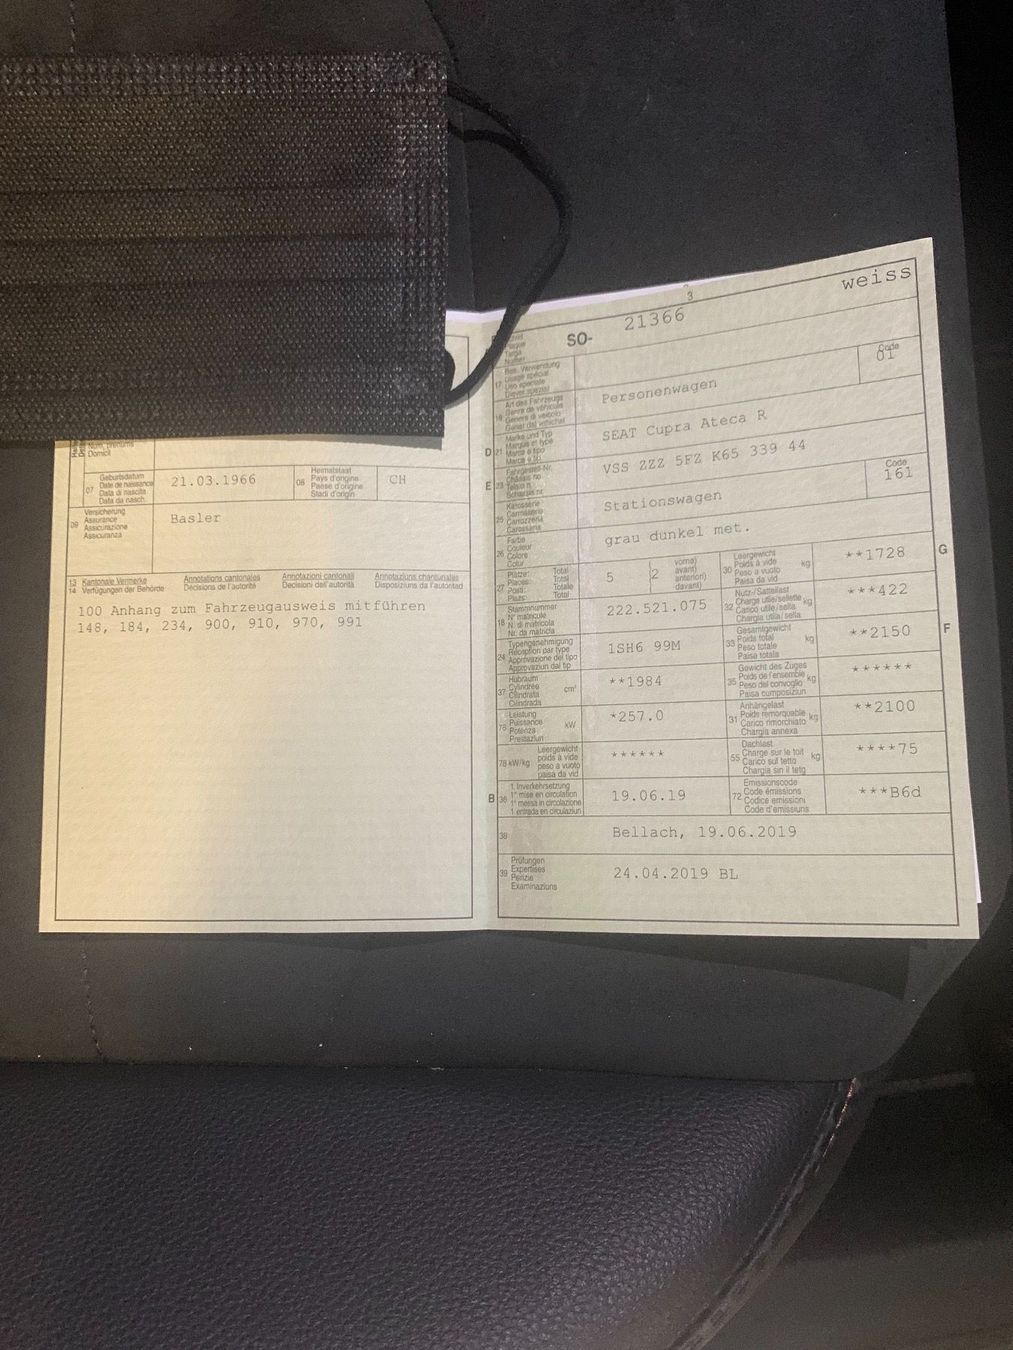 Num, prénoms
Domicil
07 Geburtsdatum
Date de naissance
Data di nascita
Data da nasch.
21.03.1966
08 Heimatstaat
Pays d'origine
Paese d'origine
Stadi d'origin
CH
09 Versicherung
Assurance
Assicurazione
Assicuranza
Basler
13 Kantonale Vermerke Annotations cantonales Annotazioni cantonali Annotaziuns chantunalas
14 Verfügungen der Behörde Décisions de l'autorité Decisioni dell'autorità Disposiziuns da l'autoritad
100 Anhang zum Fahrzeugausweis mitführen
148, 184, 234, 900, 910, 970, 991
3
SO- 21366 weiss
17 Bes. Verwendung
Usage spécial
Uso speciale
Diever spezial
Code
01
19 Art des Fahrzeugs
Genre de véhicule
Genere di veicolo
Gener dal vehichel
Personenwagen
D 21 Marke und Typ
Marque et type
Marca e tipo
Marca e tip
SEAT Cupra Ateca R
E 23 Fahrgestell-Nr.
Châssis no
Telaio n.
Schassis nr.
VSS ZZZ 5FZ K65 339 44
25 Karosserie
Carrosserie
Carrozzeria
Carossaria
Stationswagen
Code
161
26 Farbe
Couleur
Colore
Colur
grau dunkel met.
27 Plätze: Total
Places: Total
Posti: Totale
Plazs: Total
5
2
vorne)
avant)
anteriori)
davant)
30 Leergewicht
Poids à vide
Peso a vuoto
Paisa da vid
kg
**1728
G
18 Stammnummer
N° matricule
N. di matricola
Nr. da matricla
222.521.075
32 Nutz-/Sattellast
Charge utile/sellette
Carico utile/sella
Chargia utila/sella
kg
***422
24 Typengenehmigung
Réception par type
Approvazione del tipo
Approvaziun dal tip
1SH6 99M
33 Gesamtgewicht
Poids total
Peso totale
Paisa totala
kg
**2150
F
37 Hubraum
Cylindrée
Cilindrata
Cilindrada
cm³
**1984
35 Gewicht des Zuges
Poids de l'ensemble
Peso del convoglio
Paisa cumposiziun
kg
******
76 Leistung
Puissance
Potenza
Prestaziun
kW
*257.0
31 Anhängelast
Poids remorquable
Carico rimorchiato
Chargia annexa
kg
**2100
78 kW/kg Leergewicht
poids à vide
peso a vuoto
paisa da vid
******
55 Dachlast
Charge sur le toit
Carico sul tetto
Chargia sin il tetg
kg
****75
B 36 1. Inverkehrsetzung
1re mise en circulation
1a messa in circolazione
1. entrada en circulaziun
19.06.19
72 Emissionscode
Code émissions
Codice emissioni
Code d'emissiuns
***B6d
38 Bellach, 19.06.2019
39 Prüfungen
Expertises
Perizie
Examinaziuns
24.04.2019 BL